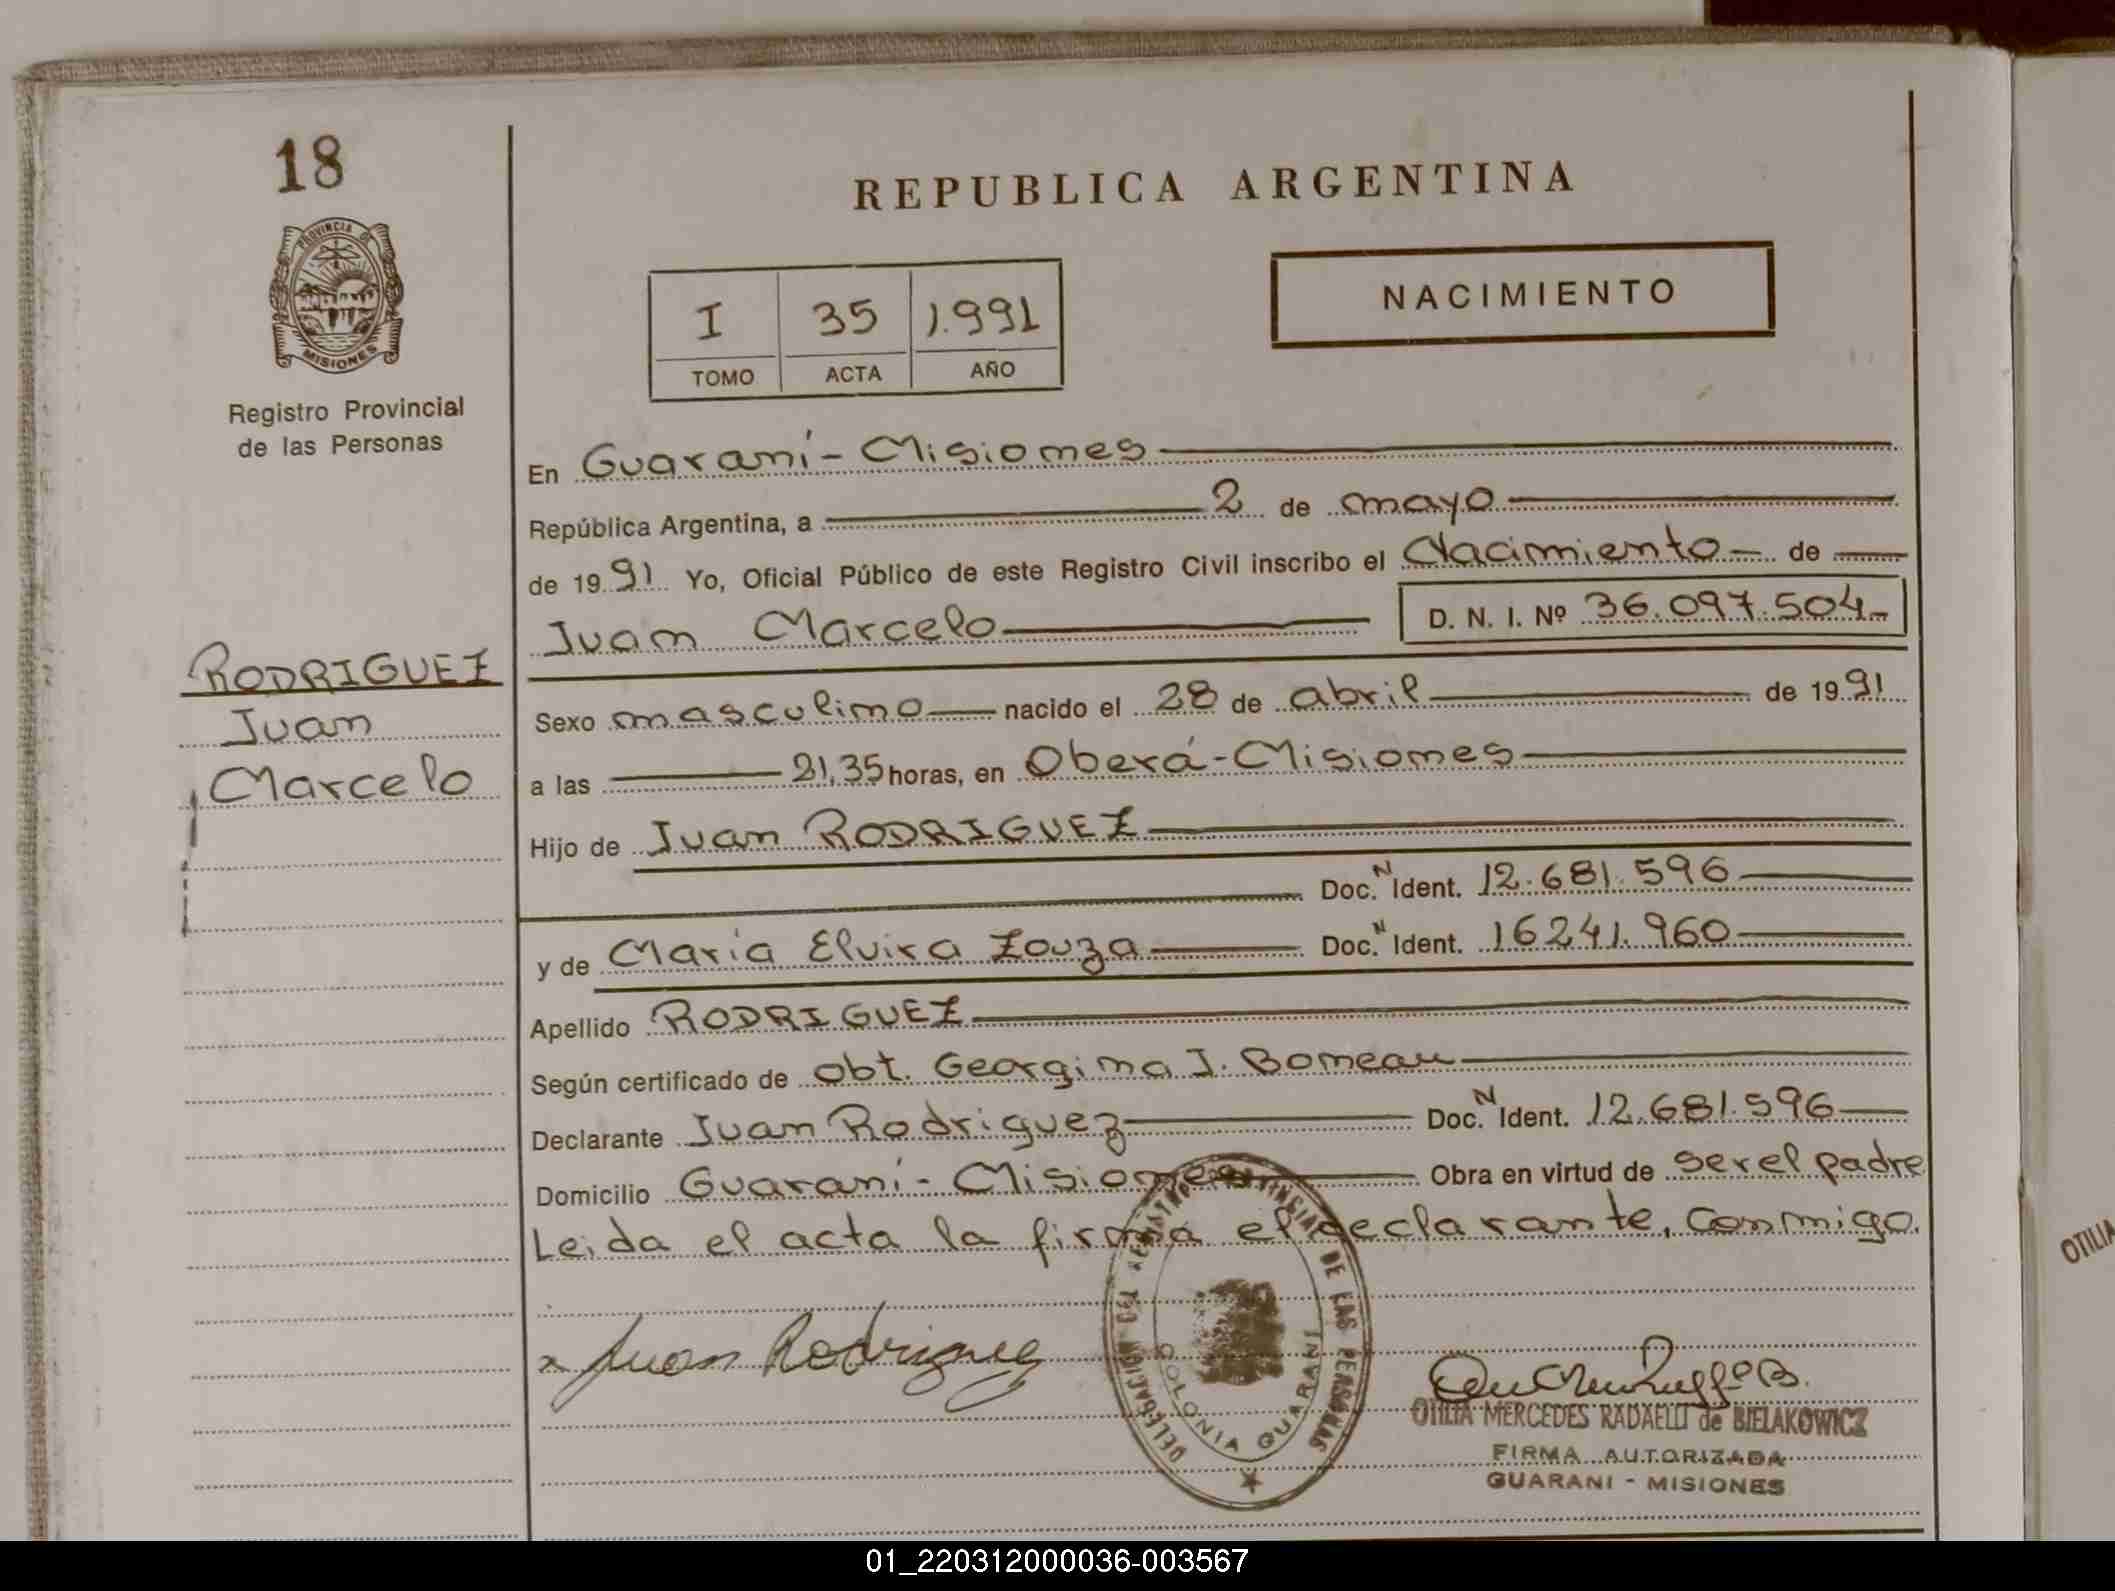 18
PROVINCIA DE
MISIONES
Registro Provincial
de las Personas
RODRIGUEZ
Juan
Marcelo
REPUBLICA ARGENTINA
I 35 1.991
TOMO ACTA AÑO
NACIMIENTO
En Guaraní - Misiones
República Argentina, a 2 de mayo
de 19 91 Yo, Oficial Público de este Registro Civil inscribo el Nacimiento de
Juan Marcelo D. N. I. Nº 36.097.504-
Sexo masculino nacido el 28 de abril de 19 91
a las 21,35 horas, en Oberá - Misiones
Hijo de Juan RODRIGUEZ
Doc. N Ident. 12.681.596
y de María Elvira Zouza Doc. N Ident. 16241.960
Apellido RODRIGUEZ
Según certificado de Obt. Georgina J. Boneau
Declarante Juan Rodriguez Doc. N Ident. 12.681.596
Domicilio Guaraní - Misiones Obra en virtud de ser el padre
Leida el acta la firma el declarante, conmigo.
x Juan Rodriguez
DELEGACION DEL REGISTRO PROVINCIAL DE LAS PERSONAS
COLONIA GUARANI
OTILIA MERCEDES RADAELLI de BIELAKOWICZ
FIRMA AUTORIZADA
GUARANI - MISIONES
OTILIA
01_220312000036-003567